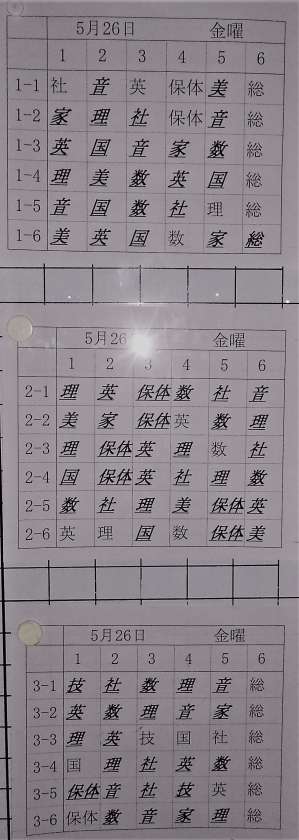 5月26日 金曜
1 2 3 4 5 6
1-1 社 音 英 保体 美 総
1-2 家 理 社 保体 音 総
1-3 英 国 音 家 数 総
1-4 理 美 数 英 国 総
1-5 音 国 数 社 理 総
1-6 美 英 国 数 家 総
5月26 金曜
1 2 3 4 5 6
2-1 理 英 保体 数 社 音
2-2 美 家 保体 英 数 理
2-3 理 保体 英 理 数 社
2-4 国 保体 英 社 理 数
2-5 数 社 理 美 保体 英
2-6 英 理 国 数 保体 美
5月26日 金曜
1 2 3 4 5 6
3-1 技 社 数 理 音 総
3-2 英 数 理 音 家 総
3-3 理 英 技 国 社 総
3-4 国 理 社 英 数 総
3-5 保体 音 社 技 英 総
3-6 保体 数 音 家 理 総